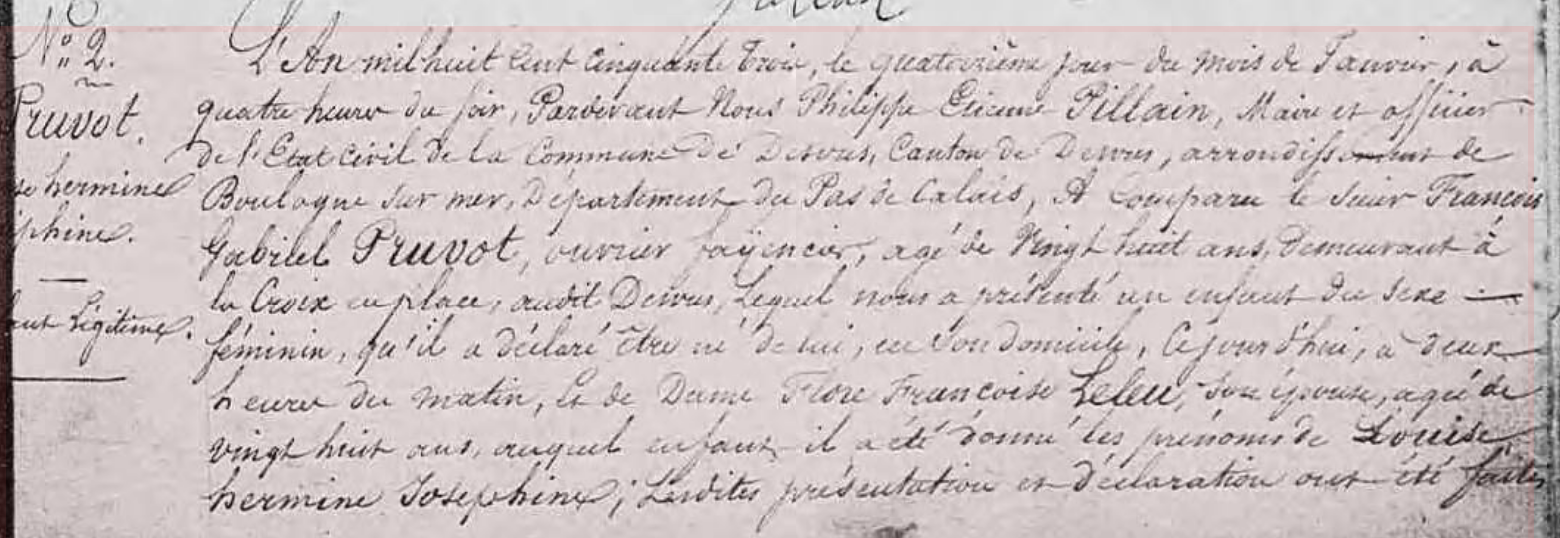 N° 2.
Pruvot.
hermine
phine.
Légitime.
L'An mil huit cent cinquante trois, le quatorzième jour du mois de Janvier, à
quatre heures du soir, Pardevant Nous Philippe Etienne Pillain, Maire et officier
de l'Etat Civil de la Commune de Desvres, Canton de Desvres, arrondissement de
Boulogne sur mer, Département du Pas de Calais, A comparu le sieur François
Gabriel Pruvot, ouvrier fayencier, agé de Vingt huit ans, demeurant à
la Croix en place, audit Desvres, Lequel nous a présenté un enfant du sexe —
féminin, qu'il a déclaré être né de lui, en son domicile, Cejourd'hui, à deux
heures du matin, Et de Dame Flore Françoise Leleu, Son épouse, agée de
vingt huit ans, auquel enfant il a été donné les prénoms de Louise
hermine Josephine; Lesdites présentation et déclaration ont été faites